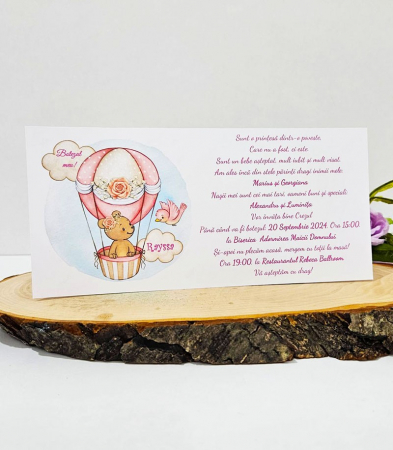 Botezul
meu!
Rayssa
Sunt o prințesă dintr-o poveste,
Care nu a fost, ci este.
Sunt un bebe așteptat, mult iubit și mult visat.
Am ales încă din stele părinți dragi inimii mele:
Marius și Georgiana
Nașii mei sunt cei mai tari, oameni buni și speciali:
Alexandru și Luminița
Vor învăța bine Crezul
Până când va fi botezul: 20 Septembrie 2024, Ora 15:00,
la Biserica Adormirea Maicii Domnului
Și-apoi nu plecăm acasă, mergem cu toții la masă!
Ora 19:00, la Restaurantul Rebeca Ballroom.
Vă așteptăm cu drag!